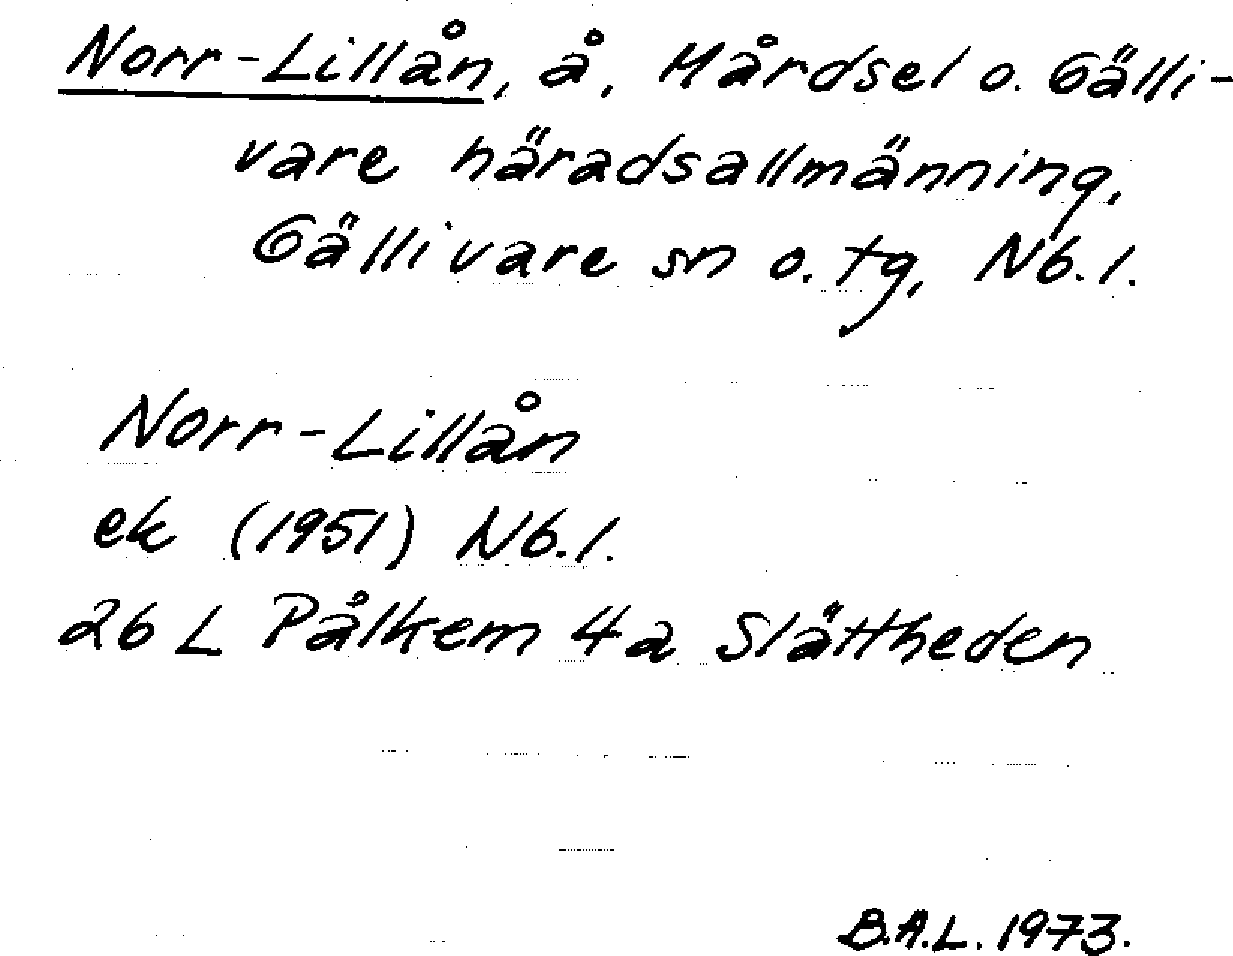 Norr-Lillån, å, Mårdsel o. Gälli-
vare häradsallmänning,
Gällivare sn o. tg, Nb. l.
Norr-Lillån
ek (1951) Nb. l.
26 L Pålkem 4a Slättheden
B.A.L. 1973.